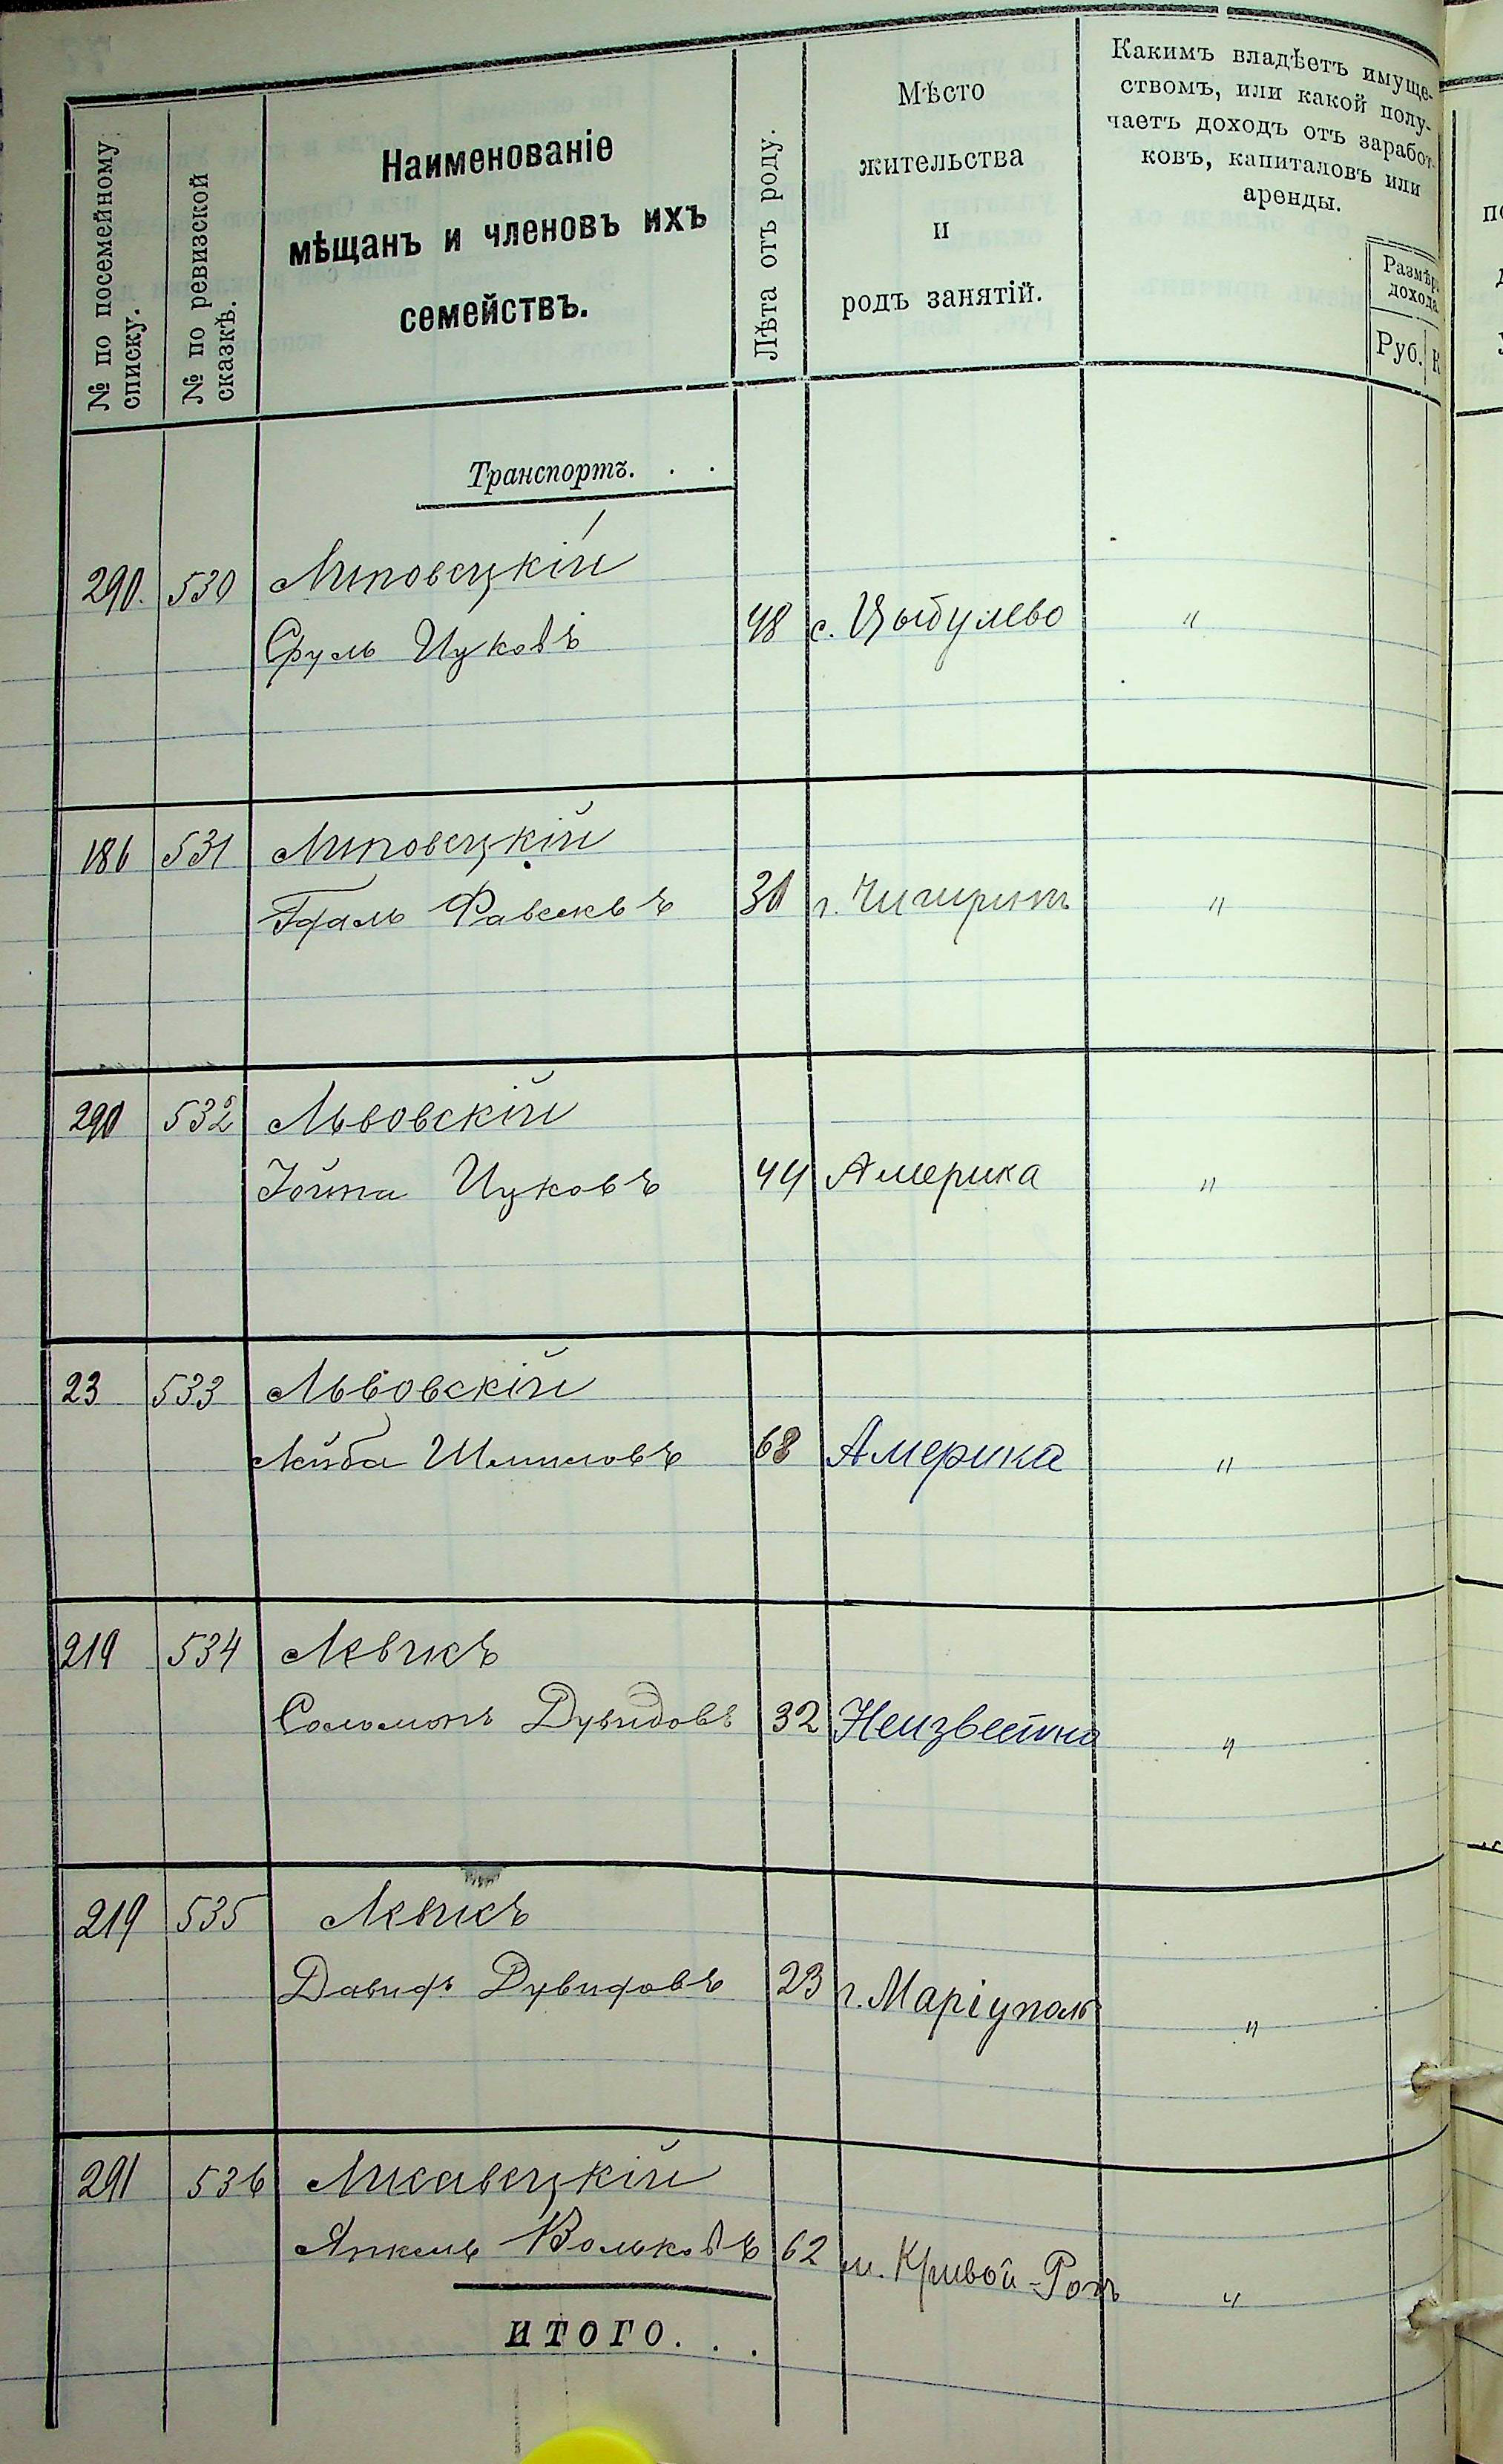 № по посемейному
списку.
№ по ревизской
сказкѣ.
Наименованіе
мѣщанъ и членовъ ихъ
семействъ.
Лѣта отъ роду.
Мѣсто
жительства
и
родъ занятій.
Какимъ владѣетъ имуще-
ствомъ, или какой полу-
чаетъ доходъ отъ заработ-
ковъ, капиталовъ или
аренды.
Размѣръ
дохода
Руб. К
Транспортъ. . .
290. 530 Липовецкій
Сруль Ицковъ 48 с. Цыбулево "
186 531 Липовецкій
30 г. Чигиринъ "
290 532 Львовскій
Іойна Ицковъ 44 Америка "
23 533 Львовскій
Лейба Шмиловъ 68 Америка "
219 534 Левикъ
Соломонъ Дувидовъ 32 Неизвестно "
219 535 Левикъ
Давидъ Дувидовъ 23 г. Маріуполь "
291 536 Лисавецкій
Янкель Вольковъ 62 м. Кривой-Рогъ "
ИТОГО. . .